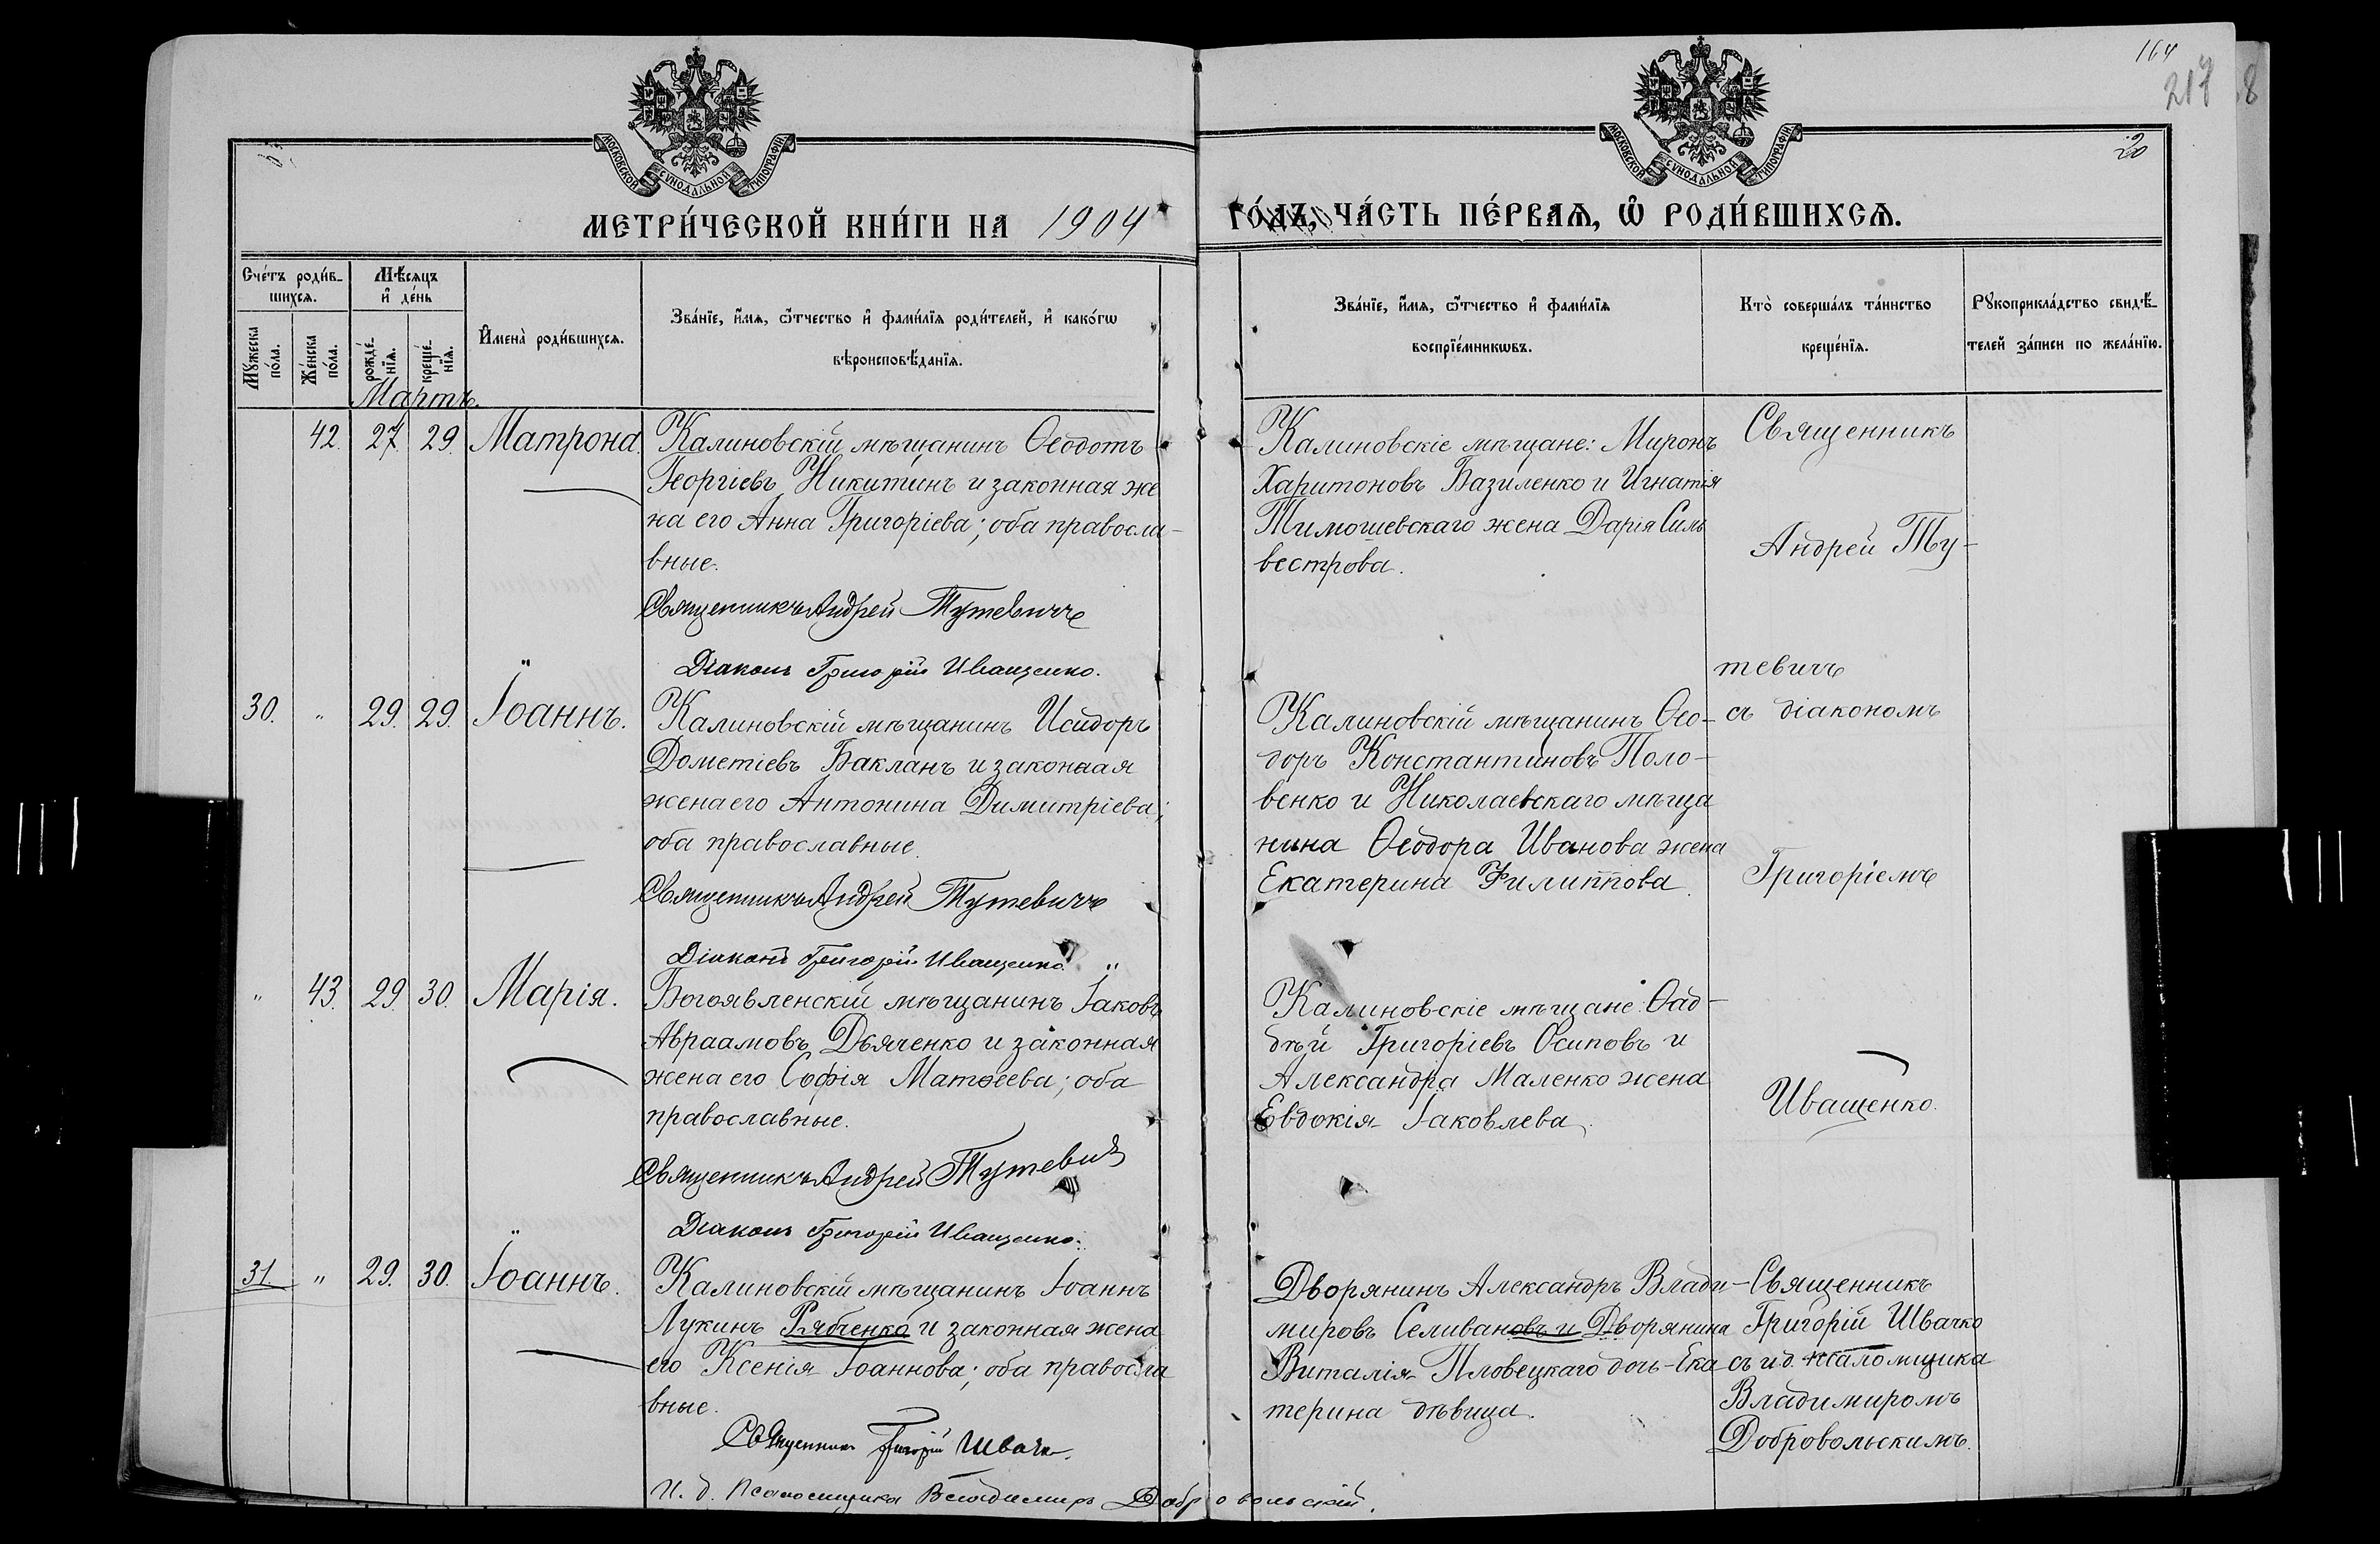 164
217
8
20
МОСКОВСКОЙ СУНОДАЛЬНОЙ ТИПОГРАФІИ
МОСКОВСКОЙ СУНОДАЛЬНОЙ ТИПОГРАФІИ
МЕТРИ́ЧЕСКОЙ КНИ́ГИ НА 1904
ГО́ДЪ, ЧА́СТЬ ПЕ́РВАѦ, Ѡ҆ РОДИ́ВШИХСѦ.
Сче́тъ роди́в-
шихсѧ.
Мѣ́сѧцъ
и҆ де́нь
Мꙋ́жеска
по́ла.
Же́нска
по́ла.
рожде́-
нїѧ.
креще́-
нїѧ.
И҆мена̀ роди́вшихсѧ.
Зва́нїе, и҆́мѧ, ѻ҆́тчество и҆ фами́лїѧ роди́телей, и҆ како́гѡ
вѣроисповѣ́данїѧ.
Зва́нїе, и҆́мѧ, ѻ҆́тчество и҆ фами́лїѧ
воспрїе́мникѡвъ.
Кто̀ соверша́лъ та́инство
креще́нїѧ.
Рꙋкоприкла́дство свидѣ́-
телей за́писи по жела́нїю.
Мартъ.
42. 27. 29. Матрона. Калиновскій мѣщанинъ Ѳеодотъ
Георгіевъ Никитинъ и законная же
на его Анна Григоріева; оба правосла-
вные.
Священникъ Андрей Тутевичъ
Діаконъ Григорій Иващенко.
Калиновскіе мѣщане: Миронъ
Харитоновъ Базиленко и Игнатія
Тимошевскаго жена Дарія Силь
вестрова.
Священникъ
Андрей Ту-
тевичъ
съ діакономъ
Григоріемъ
Иващенко.
30. " 29. 29. Іоаннъ. Калиновскій мѣщанинъ Исидоръ
Дометіевъ Бакланъ и законная
жена его Антонина Димитріева;
оба православные.
Священникъ Андрей Тутевичъ
Діаконъ Григорій Иващенко.
Калиновскій мѣщанинъ Ѳео-
доръ Константиновъ Поло-
венко и Николаевскаго мѣща
нина Ѳеодора Иванова жена
Екатерина Филиппова.
" 43. 29. 30. Марія. Богоявленскій мѣщанинъ Іаковъ
Авраамовъ Дьяченко и законная
жена его Софія Матѳеева; оба
православные.
Священникъ Андрей Тутевичъ
Діаконъ Григорій Иващенко.
Калиновскіе мѣщане: Ѳад-
дѣй Григоріевъ Осиповъ и
Александра Маленко жена
Евдокія Іаковлева.
31. " 29. 30. Іоаннъ. Калиновскій мѣщанинъ Іоаннъ
Лукинъ Рябченко и законная жена
его Ксенія Іоаннова; оба правосла
вные.
Священникъ Григорій Швачко.
И. д. Псаломщика Владимиръ Добровольскій.
Дворянинъ Александръ Влади-
мировъ Селивановъ и Дворянина
Виталія Пловецкаго дочь Ека
терина дѣвица.
Священникъ
Григорій Швачко
съ и.д. псаломщика
Владимиромъ
Добровольскимъ.